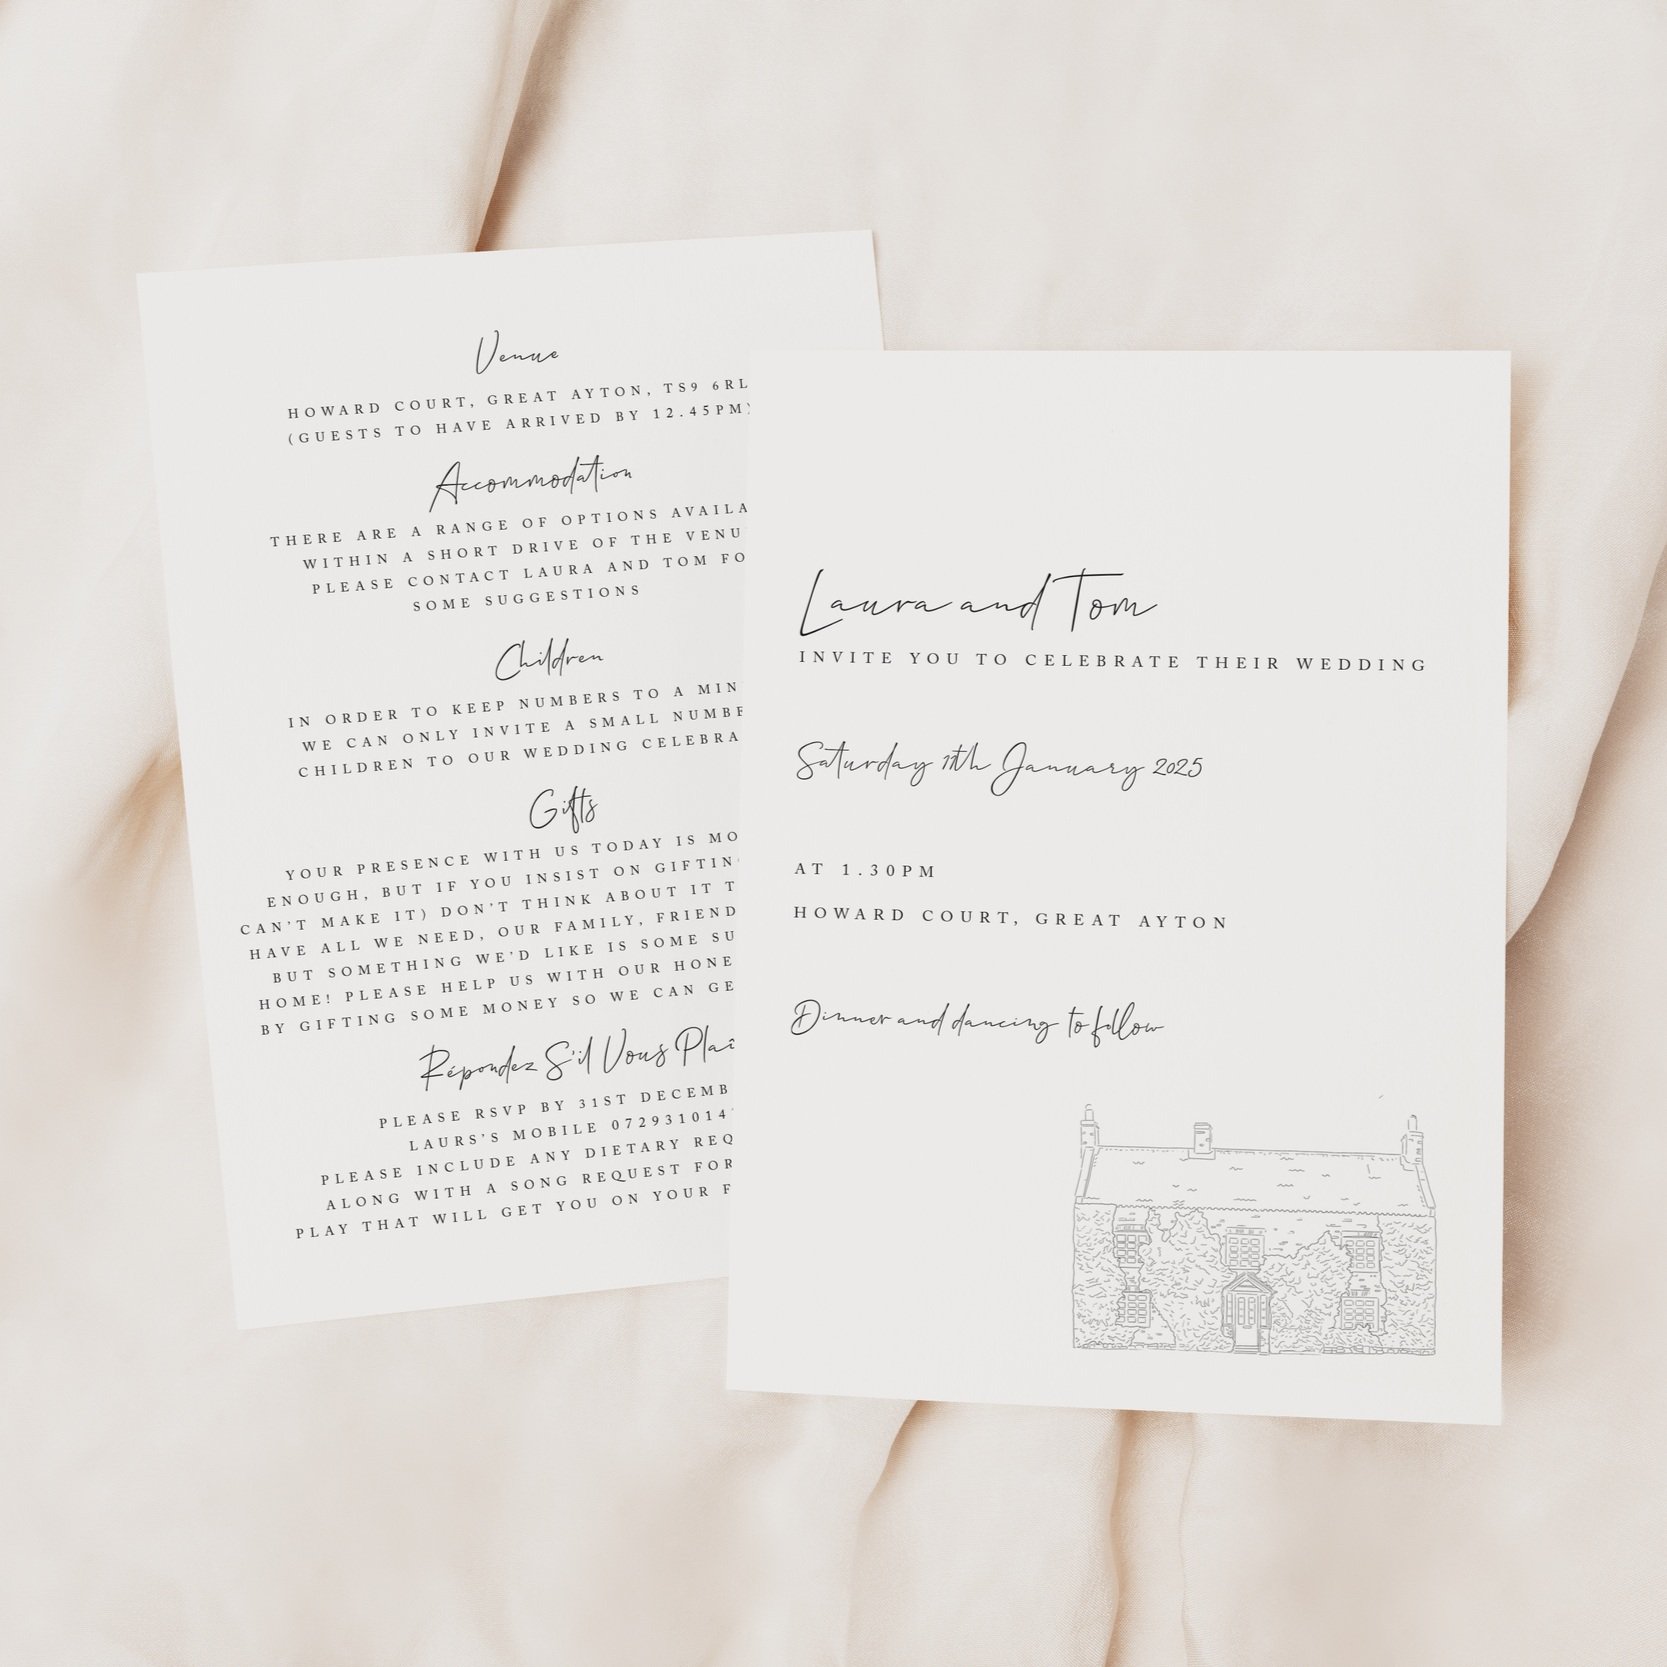 Venue
HOWARD COURT, GREAT AYTON, TS9 6RL
(GUESTS TO HAVE ARRIVED BY 12.45PM)
Accommodation
THERE ARE A RANGE OF OPTIONS AVAILA
WITHIN A SHORT DRIVE OF THE VENU
PLEASE CONTACT LAURA AND TOM FO
SOME SUGGESTIONS
Children
IN ORDER TO KEEP NUMBERS TO A MIN
WE CAN ONLY INVITE A SMALL NUMBE
CHILDREN TO OUR WEDDING CELEBRA
Gifts
YOUR PRESENCE WITH US TODAY IS MO
ENOUGH, BUT IF YOU INSIST ON GIFTIN
CAN'T MAKE IT) DON'T THINK ABOUT IT T
HAVE ALL WE NEED, OUR FAMILY, FRIEND
BUT SOMETHING WE'D LIKE IS SOME SU
HOME! PLEASE HELP US WITH OUR HONE
BY GIFTING SOME MONEY SO WE CAN GE
Répondez S'il Vous Plaî
PLEASE RSVP BY 31ST DECEMB
LAURS'S MOBILE 072931014
PLEASE INCLUDE ANY DIETARY REQ
ALONG WITH A SONG REQUEST FOR
PLAY THAT WILL GET YOU ON YOUR F
Laura and Tom
INVITE YOU TO CELEBRATE THEIR WEDDING
Saturday 11th January 2025
AT 1.30PM
HOWARD COURT, GREAT AYTON
Dinner and dancing to follow